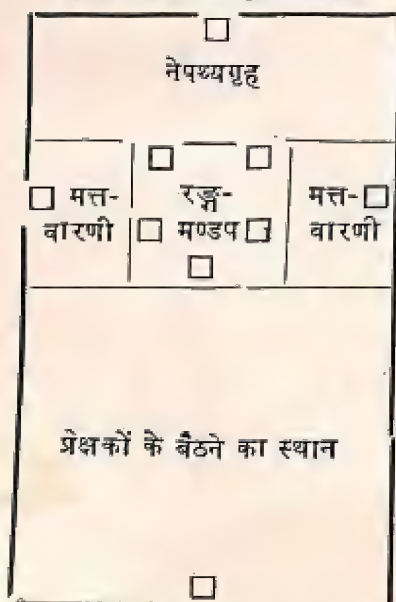 नेपथ्यगृह
मत्त-
वारणी
रङ्ग-
मण्डप
मत्त-
वारणी
प्रेक्षकों के बैठने का स्थान